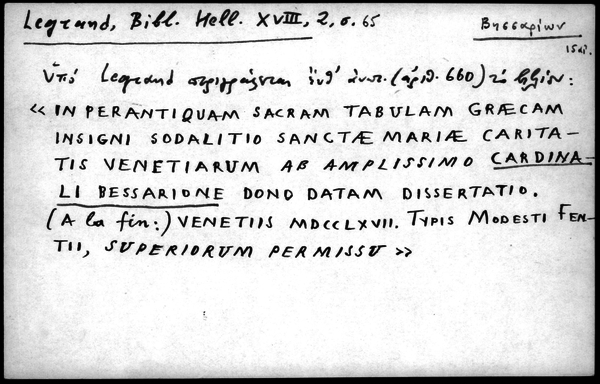 Legrand, Bibl. Hell. XVIII, 2, σ. 65
Βησσαρίων
15 αἰ.
ὑπό Legrand περιγράφεται ὑπ' ἀριθ. (ἀριθ. 660) τὸ ἑξῆς:
« IN PERANTIQUAM SACRAM TABULAM GRÆCAM
INSIGNI SODALITIO SANCTÆ MARIÆ CARITA-
TIS VENETIARUM AB AMPLISSIMO CARDINA-
LI BESSARIONE DONO DATAM DISSERTATIO.
(A la fin:) VENETIIS MDCCLXVII. TYPIS MODESTI FEN-
TII, SUPERIORUM PERMISSU »